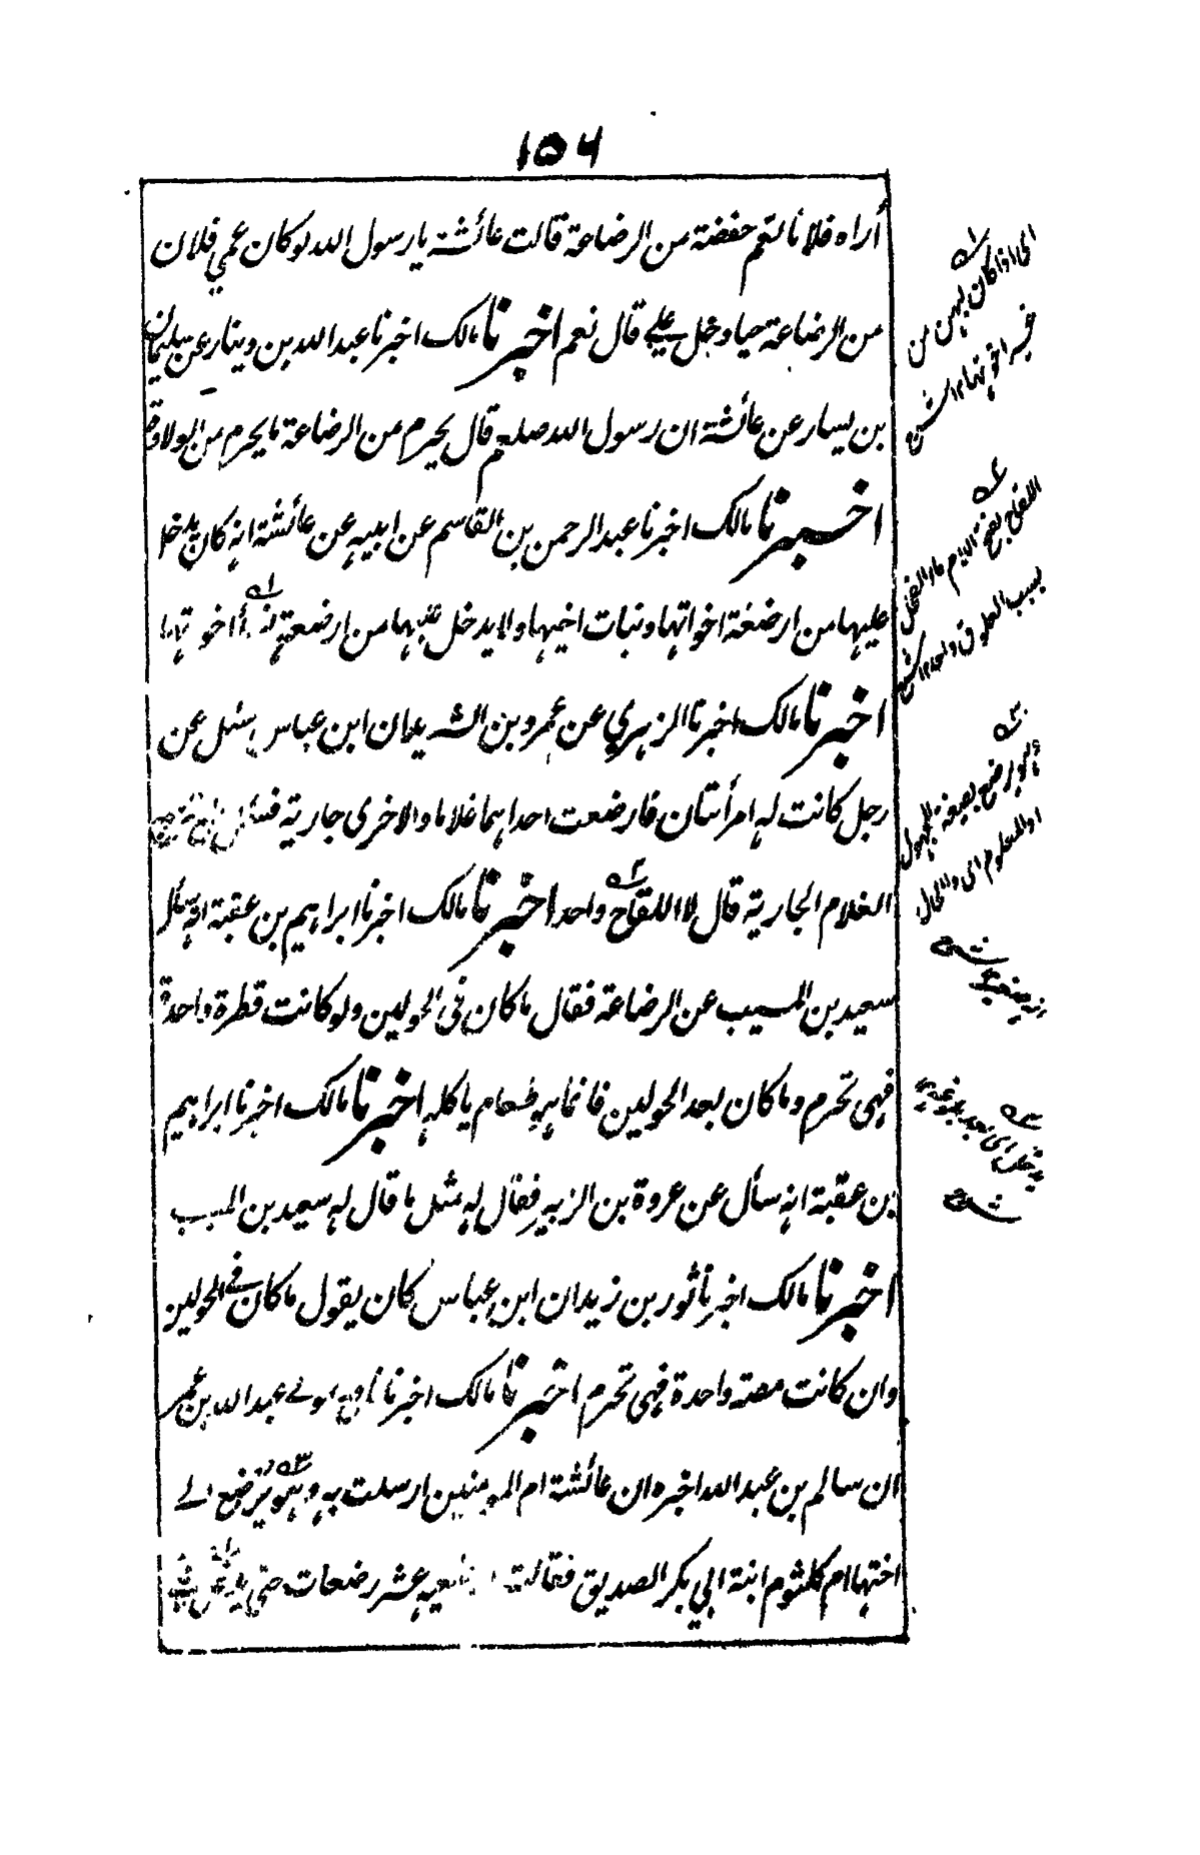 ١٥٦
أراه فلانا لعم حفضة من الرضاعة قالت عائشة يارسول الله لوكان عمي فلان
من الرضاعة حيا دخل علي قال نعم اخبرنا مالك اخبرنا عبد الله بن دينار عن سليمان
بن يسار عن عائشة ان رسول الله صلعم قال يحرم من الرضاعة ما يحرم من الولادة
اخبرنا مالك اخبرنا عبد الرحمن بن القاسم عن ابيه عن عائشة انه كان يدخل
عليها من ارضعته اخواتها وبنات اخيها ولا يدخل عليها من ارضعته نساء اخوتها
اخبرنا مالك اخبرنا الزهري عن عمرو بن الشريد ان ابن عباس سئل عن
رجل كانت له امرأتان فارضعت احداهما غلاما والاخرى جارية فسئل
الغلام الجارية قال لا اللقاح واحد اخبرنا مالك اخبرنا ابراهيم بن عقبة انه سأل
سعيد بن المسيب عن الرضاعة فقال ما كان في الحولين ولو كانت قطرة واحدة
فهى تحرم وما كان بعد الحولين فانما هو طعام ياكله اخبرنا مالك اخبرنا ابراهيم
بن عقبة انه سأل عن عروة بن الزبير فقال له مثل ما قال له سعيد بن المسيب
اخبرنا مالك اخبرنا ثور بن زيد ان ابن عباس كان يقول ما كان في الحولين
وان كانت مصة واحدة فهى تحرم اخبرنا مالك اخبرنا نافع مولے عبد الله بن عمر
ان سالم بن عبد الله اخبره ان عائشة ام المومنين ارسلت به وهو يرضع الے
اختها ام كلثوم ابنة ابي بكر الصديق فقالت عشر رضعات حتى يدخل
اى اذا كان لهن من
اللقاح بفتح اللام ماء الفحل
يرضع بصيغة المجهول
او المعلوم اى والحال